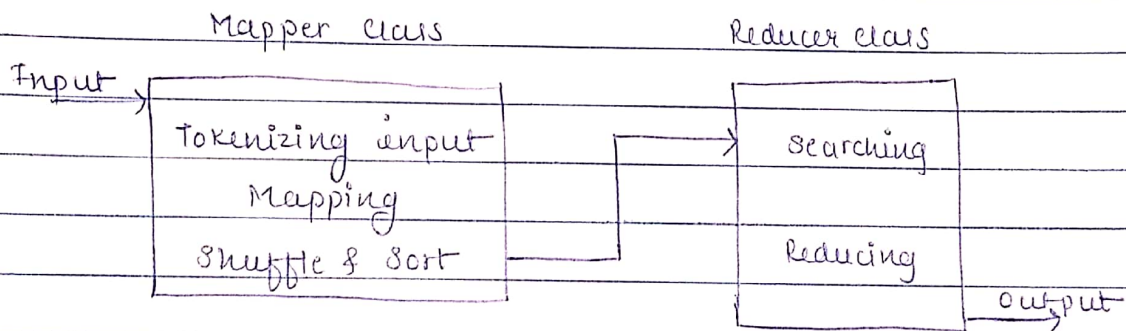 Mapper class
Reducer class
Input
Tokenizing input
Mapping
Shuffle & Sort
Searching
Reducing
output